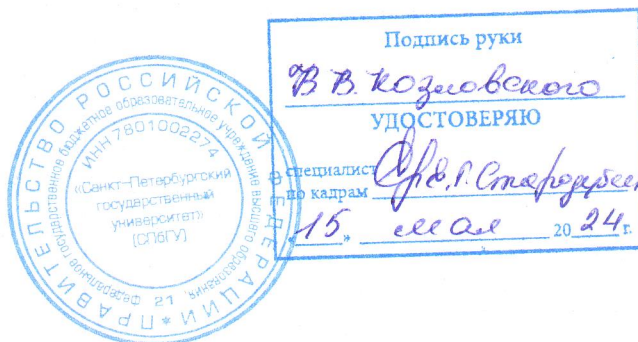 ПРАВИТЕЛЬСТВО РОССИЙСКОЙ ФЕДЕРАЦИИ *
федеральное государственное бюджетное образовательное учреждение высшего образования
ИНН 7801002274
«Санкт-Петербургский
государственный
университет»
(СПбГУ)
21
Подпись руки
В.В. Козловского
УДОСТОВЕРЯЮ
специалист
по кадрам
"15" мая 2024 г.